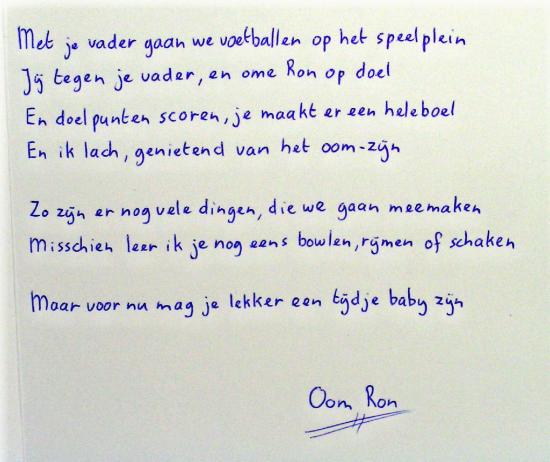 Met je vader gaan we voetballen op het speelplein
Jij tegen je vader, en ome Ron op doel
En doelpunten scoren, je maakt er een heleboel
En ik lach, genietend van het oom-zijn
Zo zijn er nog vele dingen, die we gaan meemaken
Misschien leer ik je nog eens bowlen, rijmen of schaken
Maar voor nu mag je lekker een tijdje baby zijn
Oom Ron